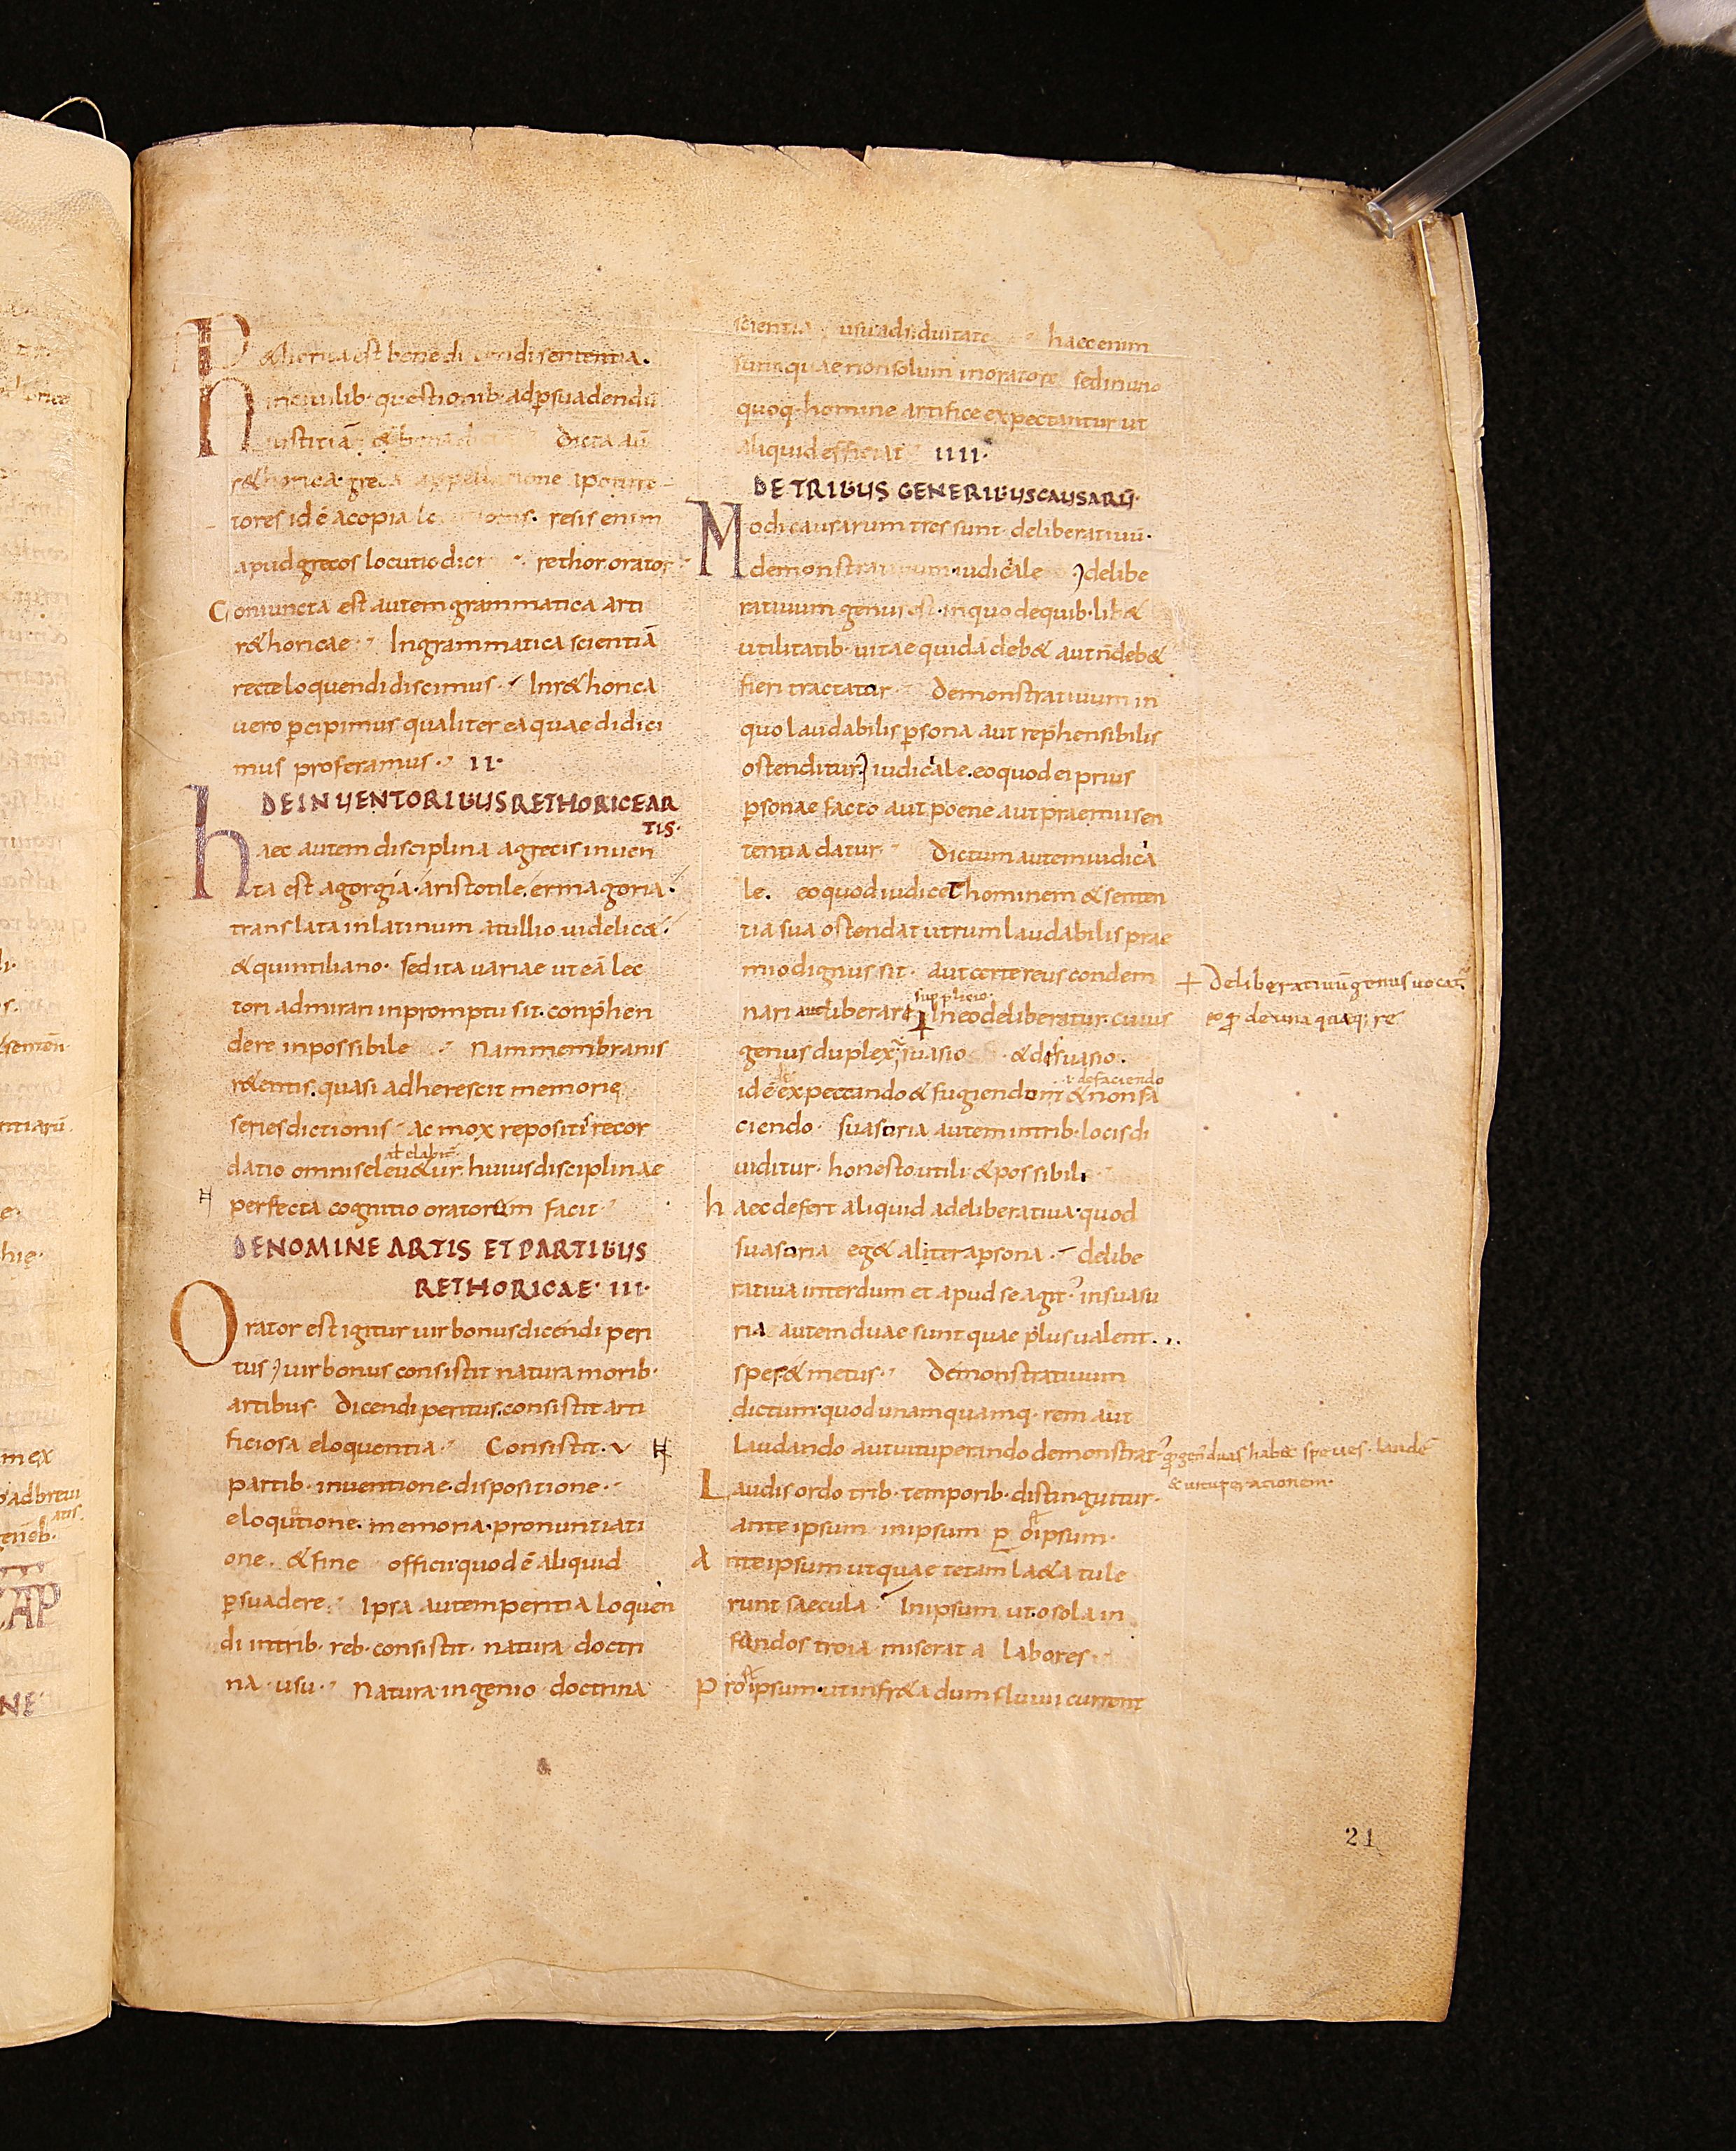 R&horica est bene dicendi sententia.
in ciuilib· questionib· adpsuadendū
iustitiā & bona Dicta aū
r&horica greca appellatione
tores id ē acopia locutionis. resis enim
apud grecos locutio dicit rethor. orator
Coniuncta est autem grammatica arti
r&horicae· Ingrammatica scientiā
recte loquendi discimus· Inr&horica
uero pcipimus qualiter ea quae didici
mus proferamus· II·
DE INUENTORIBUS RETHORICE AR
TIS·
haec autem disciplina agrecis inuen
ta est agorgia· aristotile. ermagoria·
translata inlatinum atullio uidelic&·
& quintiliano· sed ita uariae ut eā lec
tori admirari inpromptu sit. conphen
dere inpossibile Nam membranis
r&entis. quasi adherescit memorie
series dictionis ac mox repositi recor
datio omnis eleu&ur. huius disciplinae
perfecta cognitio oratorem facit
DE NOMINE ARTIS ET PARTIBUS
RETHORICAE· III·
Orator est igitur uir bonus dicendi peri
tus) uir bonus consistit natura morib·
artibus· Dicendi peritus. consistit arti
ficiosa eloquentia· Consistit· V
partib· inuentione· dispositione·
eloqutione· memoria· pronuntiati
one. & fine officii quod ē aliquid
psuadere· Ipsa autem peritia loquen
di intrib· reb· consistit· natura doctri
na· usu· Natura ingenio doctrina
scientia usu adsiduitate haec enim
sunt quae non solum inoratore sed inuno
quoq· homine artifice expectantur ut
aliquid efficiat IIII·
DE TRIBUS GENERIBUS CAUSARŪ·
Modi causarum tres sunt deliberatiuū·
demonstratiuum· iudicale )delibe
ratiuum genus est· inquo dequib·lib&
utilitatib· uitae quid a deb& aut ñ deb&
fieri tractatur Demonstratiuum in
quo laudabilis psona aut rephensibilis
ostenditur) iudicale. eo quod ei prius
psonae facto aut poene aut praemii sen
tentia datur Dictum autem iudica
le. eo quod iudicet hominem & senten
tia sua ostendat utrum laudabilis prae
mio dignus sit· aut certe reus condem
supplicio·
nari aut liberari Ineo deliberatur· cuius
+ Deliberatiuū genus uocat
eo qđ de una quaq; re
genus duplex suasio & dissuasio.
·i· defaciendo
id ē expectando & fugiendo & non fa
ciendo· suasoria autem intrib· locis di
uiditur· honesto utili & possibili
haec defert aliquid adeliberatiua· quod
suasoria eg& aliter apsona· delibe
ratiua interdum et apud se agit· insuasu
ria autem duae sunt quae plus ualent...
spes & metus· Demonstratiuum
dictum quod unam quamq· rem aut
laudando aut uituperando demonstrat
laudē
& uituperationem·
Laudis ordo trib· temporib· distinguitur·
ante ipsum inipsum
Ante ipsum ut quae te tam la&a tule
runt saecula Inipsum ut o sola in
fandos troia miserata labores·
Post ipsum· ut infr&a dum fluuii current
21